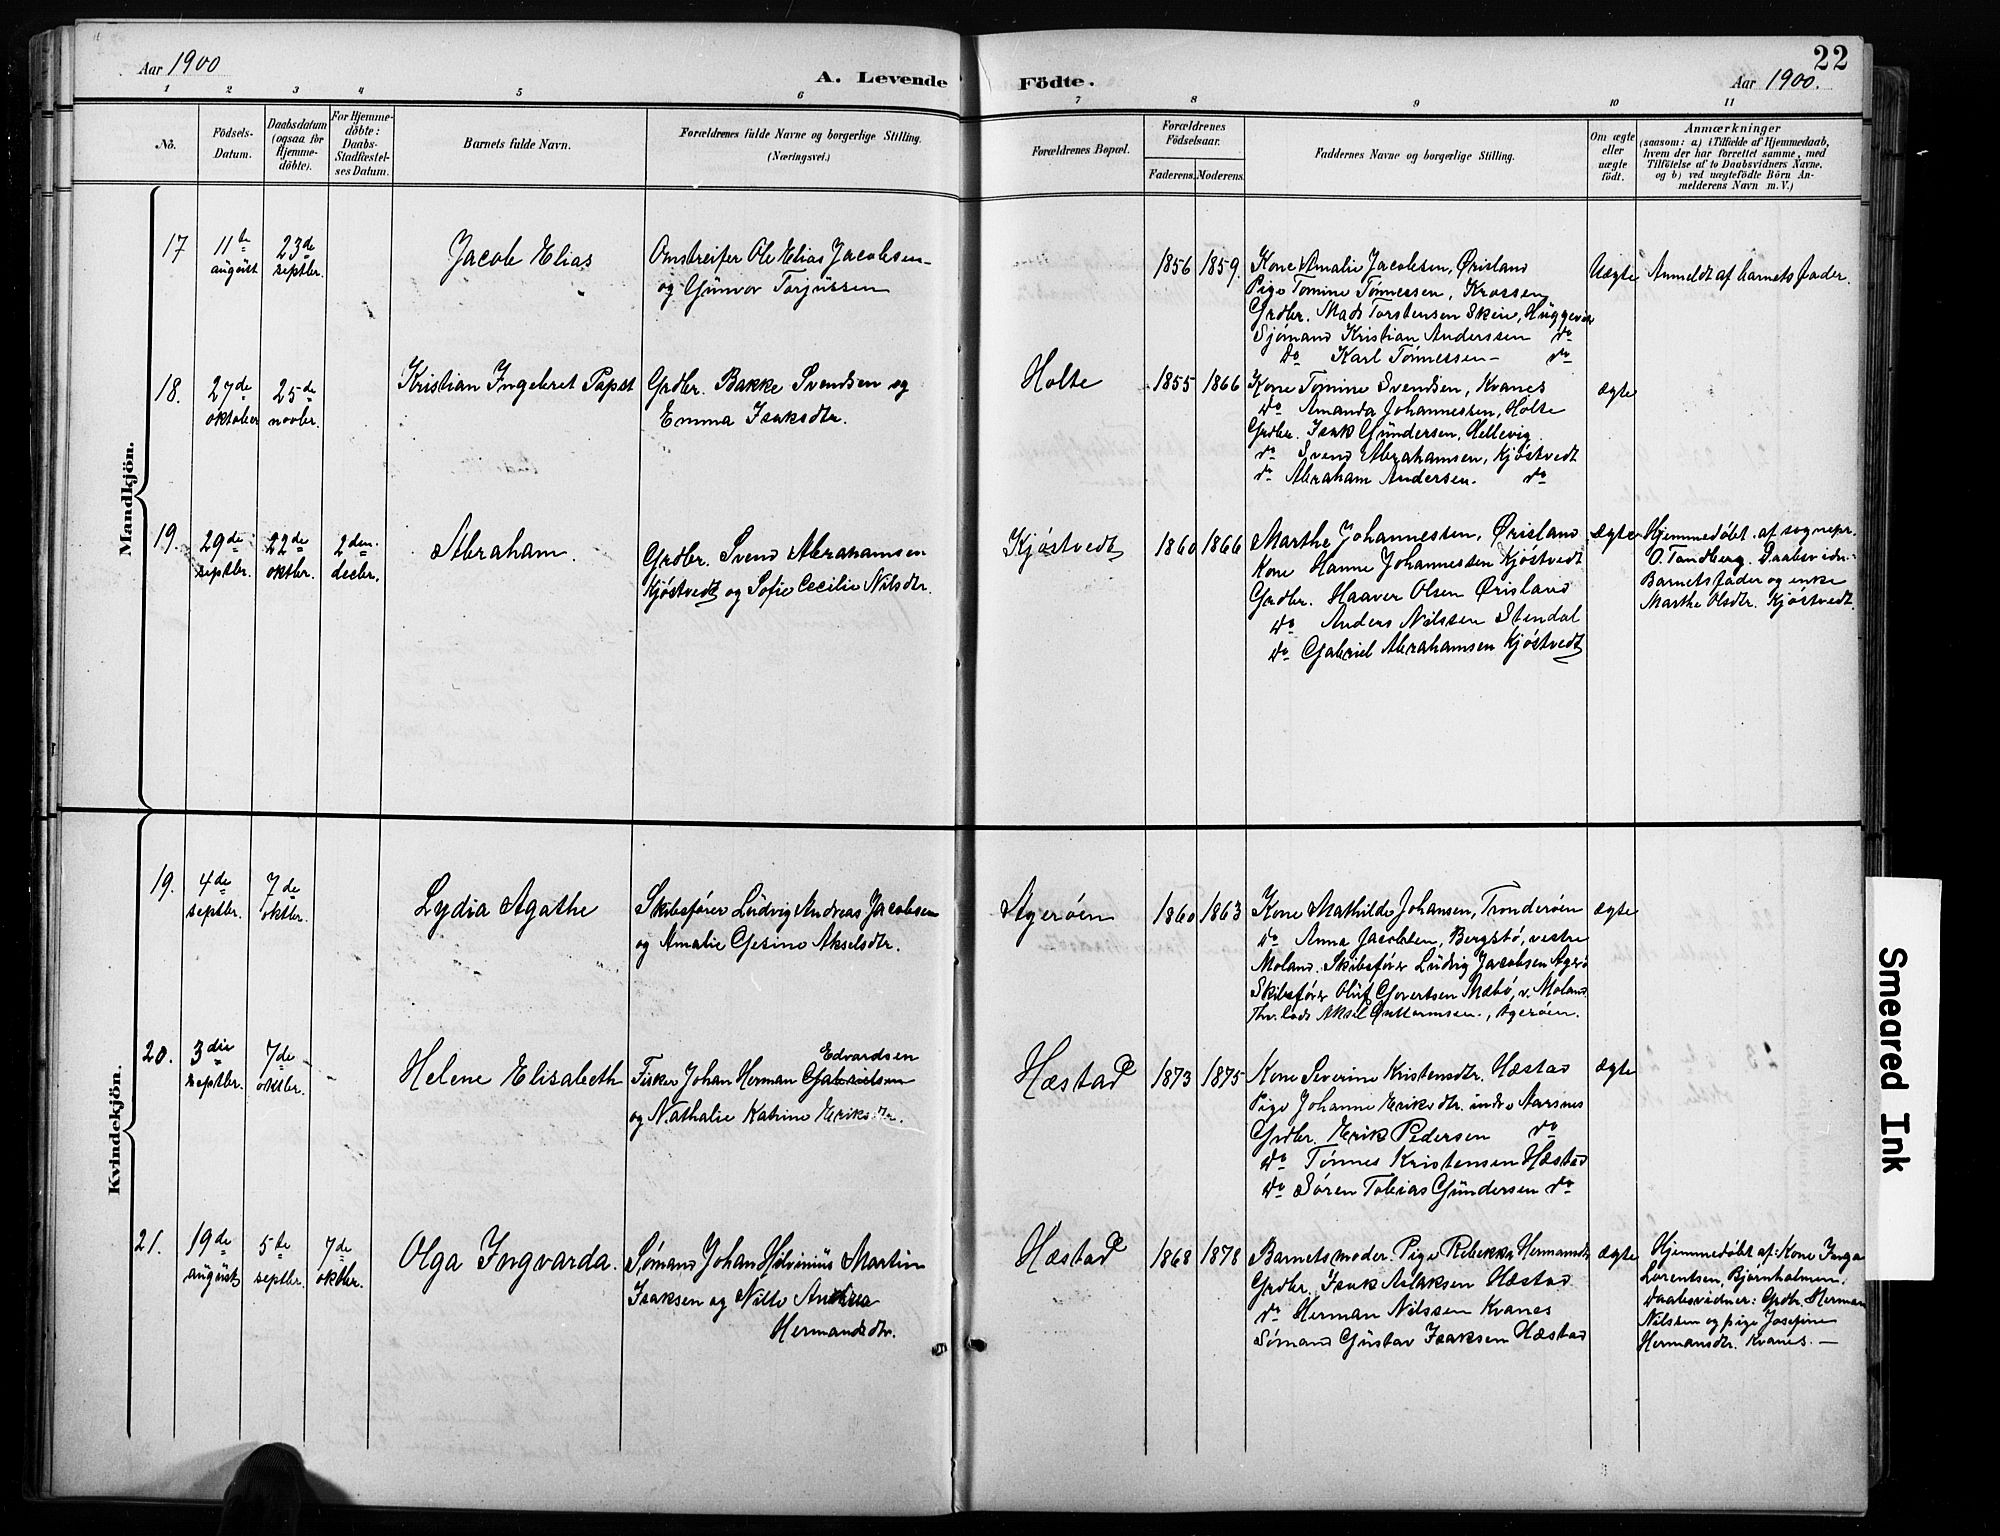 22
Aar 1900
A. Levende Födte.
Aar 1900.
1 2 3 4 5 6 7 8 9 10 11
No.
Födsels-
Datum.
Daabsdatum
(ogsaa for
Hjemme-
döbte).
For Hjemme-
döbte:
Daabs-
Stadfæstel-
ses Datum.
Barnets fulde Navn.
Forældrenes fulde Navne og borgerlige Stilling.
(Næringsvei.)
Forældrenes Bopæl.
Forældrenes
Födselsaar.
Faderens.
Moderens.
Faddernes Navne og borgerlige Stilling.
Om ægte
eller
uægte
födt.
Anmærkninger
(saasom: a) i Tilfælde af Hjemmedaab,
hvem der har forrettet samme, med
Tilföielse af to Daabsvidners Navne.
og b) ved uægtefödte Börn An-
melderens Navn m. V.)
Mandkjön.
17
11te
august
23de
septbr.
Jacob Elias
Omstreifer Ole Elias Jacobsen
og Gunvor Torjussen
1856
1859.
Kone Amalie Jacobsen, Ørisland
Pige Tomine Tønnessen, Krossen
Grdbr. Mads Torstensen Skein,
Sjømand Kristian Anderssen do
do Karl Tønnessen do
Uægte
Anmeldt af barnets fader.
18.
27de
oktober
25de
novbr.
Kristian Ingebret Papst
Grdbr. Bakke Svendsen og
Emma Isaksdtr.
Holte
1855
1866
Kone Tomine Svendsen, Kvanes
do Amanda Johannessen, Holte
Grdbr. Isak Gundersen, Hellevig
do Svend Abrahamsen, Kjøstvedt
do Abraham Andersen. do
ægte
19.
29de
septbr.
22de
oktbr.
2den
decbr.
Abraham.
Grdbr. Svend Abrahamsen
Kjøstvedt og Sofie Cecilie Nilsdtr.
Kjøstvedt
1860
1866
Marthe Johannessen, Ørisland
Kone Hanne Johannessen Kjøstvedt
Grdbr. Haaver Olsen Ørisland
do Anders Nilssen Stendal
do Gabriel Abrahamsen Kjøstvedt
ægte
Hjemmedøbt af sognepr.
O. Tandberg. Daabsvidn:
Barnets fader og enke
Marthe Olsdtr. Kjøstvedt.
Kvindekjön.
19.
4de
septbr.
7de
oktbr.
Lydia Agathe
Skibsfører Ludvig Andreas Jacobsen
og Amalie Gesine Akselsdtr.
Agerøen
1860
1863
Kone Mathilde Johansen, Tronderøen
do Anna Jacobsen, Bergstø, vestre
Moland. Skibsfører Ludvig Jacobsen Agerø
Skibsfører Oluf Govertsen Mæbø, v. Moland
Aksel Guttormsen, Agerøen.
ægte
20.
3die
septbr.
7de
oktbr.
Helene Elisabeth
Edvardsen
Fisker Johan Herman Gabrielsen
og Nathalie Katrine Eriksdtr.
Hæstad
1873
1875
Kone Severine Kristensdtr. Hæstad
Pige Johanne Eriksdtr. indre Aarsnes
Grdbr. Erik Pedersen do
do Tønnes Kristensen Hæstad
do Søren Tobias Gundersen do
ægte
21.
19de
august
5te
septbr.
7de
oktbr.
Olga Ingvarda.
Sømand Johan Martin
Isaksen og Andrea
Hermandsdtr.
Hæstad
1868
1878
Barnets moder. Pige Rebekka Hermansdtr
Grdbr. Isak Aslaksen Hæstad
do Herman Nilssen Kvanes
Sømand Gustav Isaksen Hæstad
ægte
Hjemmedøbt af: Kone Inga
Lorentsen, Bjørnholmen.
Daabsvidner: Grdbr. Herman
Nilssen og pige Josefine
Hermansdtr. Kvanes. —
Smeared Ink